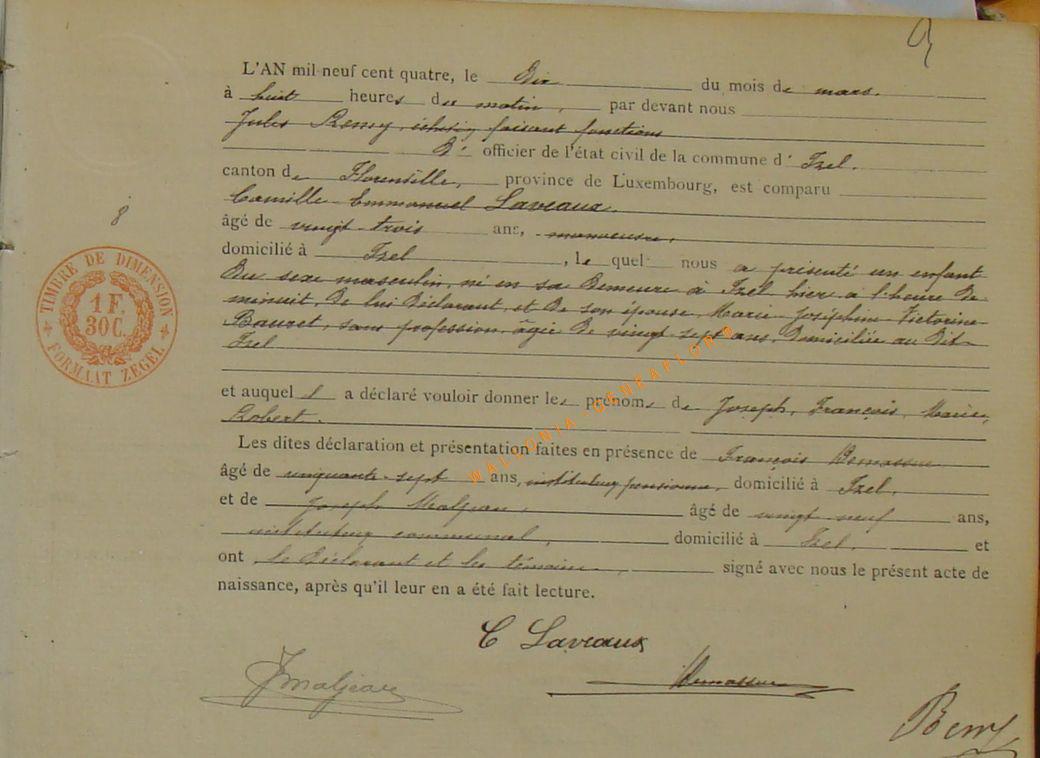 9
L'AN mil neuf cent quatre, le Dix du mois de mars.
à huit heures du matin, par devant nous
Jules Remy, échevin faisant fonctions
D' officier de l'état civil de la commune d' Izel.
canton de Florenville, province de Luxembourg, est comparu
Camille Emmanuel Laveaux.
âgé de vingt trois ans, manœuvre,
domicilié à Izel, le quel nous a présenté un enfant
Du sexe masculin, né en sa Demeure à Izel hier à l'heure de
minuit, De lui Déclarant, et De son épouse, Marie Joséphine Victorine
sans profession, agée De vingt sept ans, Domiciliée au Dit
Izel
et auquel il a déclaré vouloir donner les prénoms de Joseph, François, Marie,
Robert.
Les dites déclaration et présentation faites en présence de François
âgé de cinquante-sept ans, instituteur pensionné, domicilié à Izel.
et de Joseph Maljean, âgé de vingt neuf ans,
instituteur communal, domicilié à Izel. et
ont le Déclarant et les témoins, signé avec nous le présent acte de
naissance, après qu'il leur en a été fait lecture.
8
TIMBRE DE DIMENSION
1 F.
30 C.
FORMAAT ZEGEL
WALLONIA-GENEAFLORE
C Laveaux
J Maljean
Remy